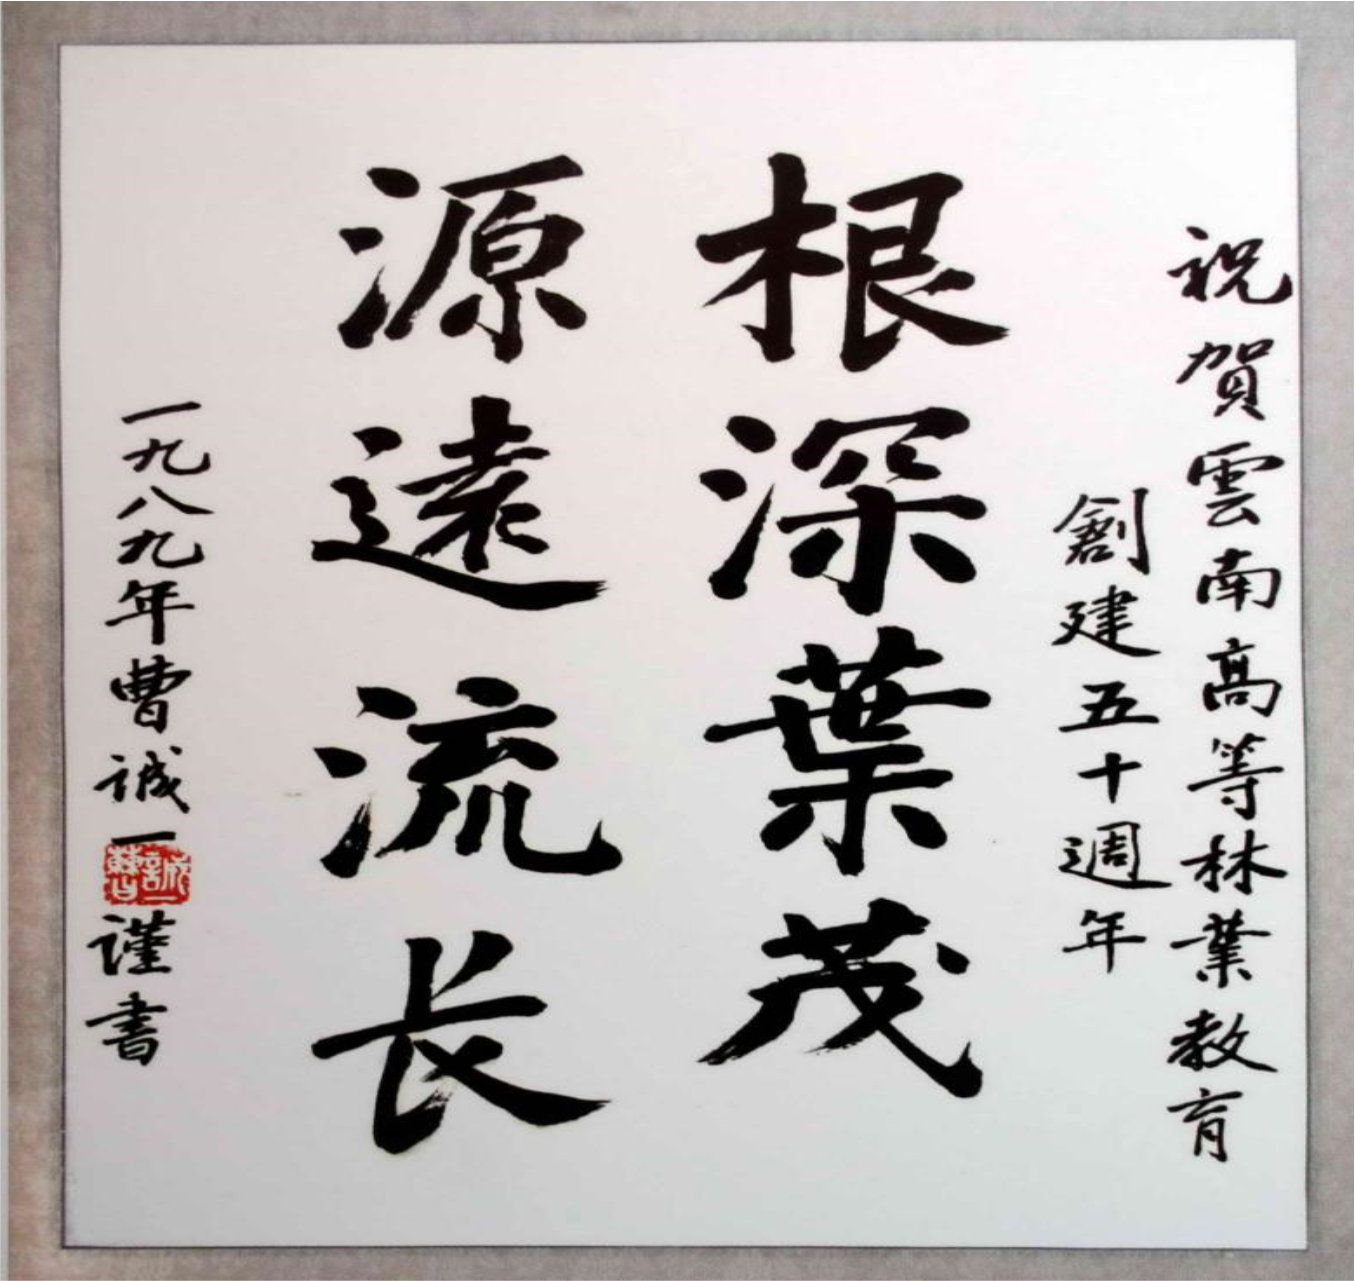 祝賀雲南高等林業教育
創建五十週年
根深葉茂
源遠流长
一九八九年曹誠一謹書
曹誠一